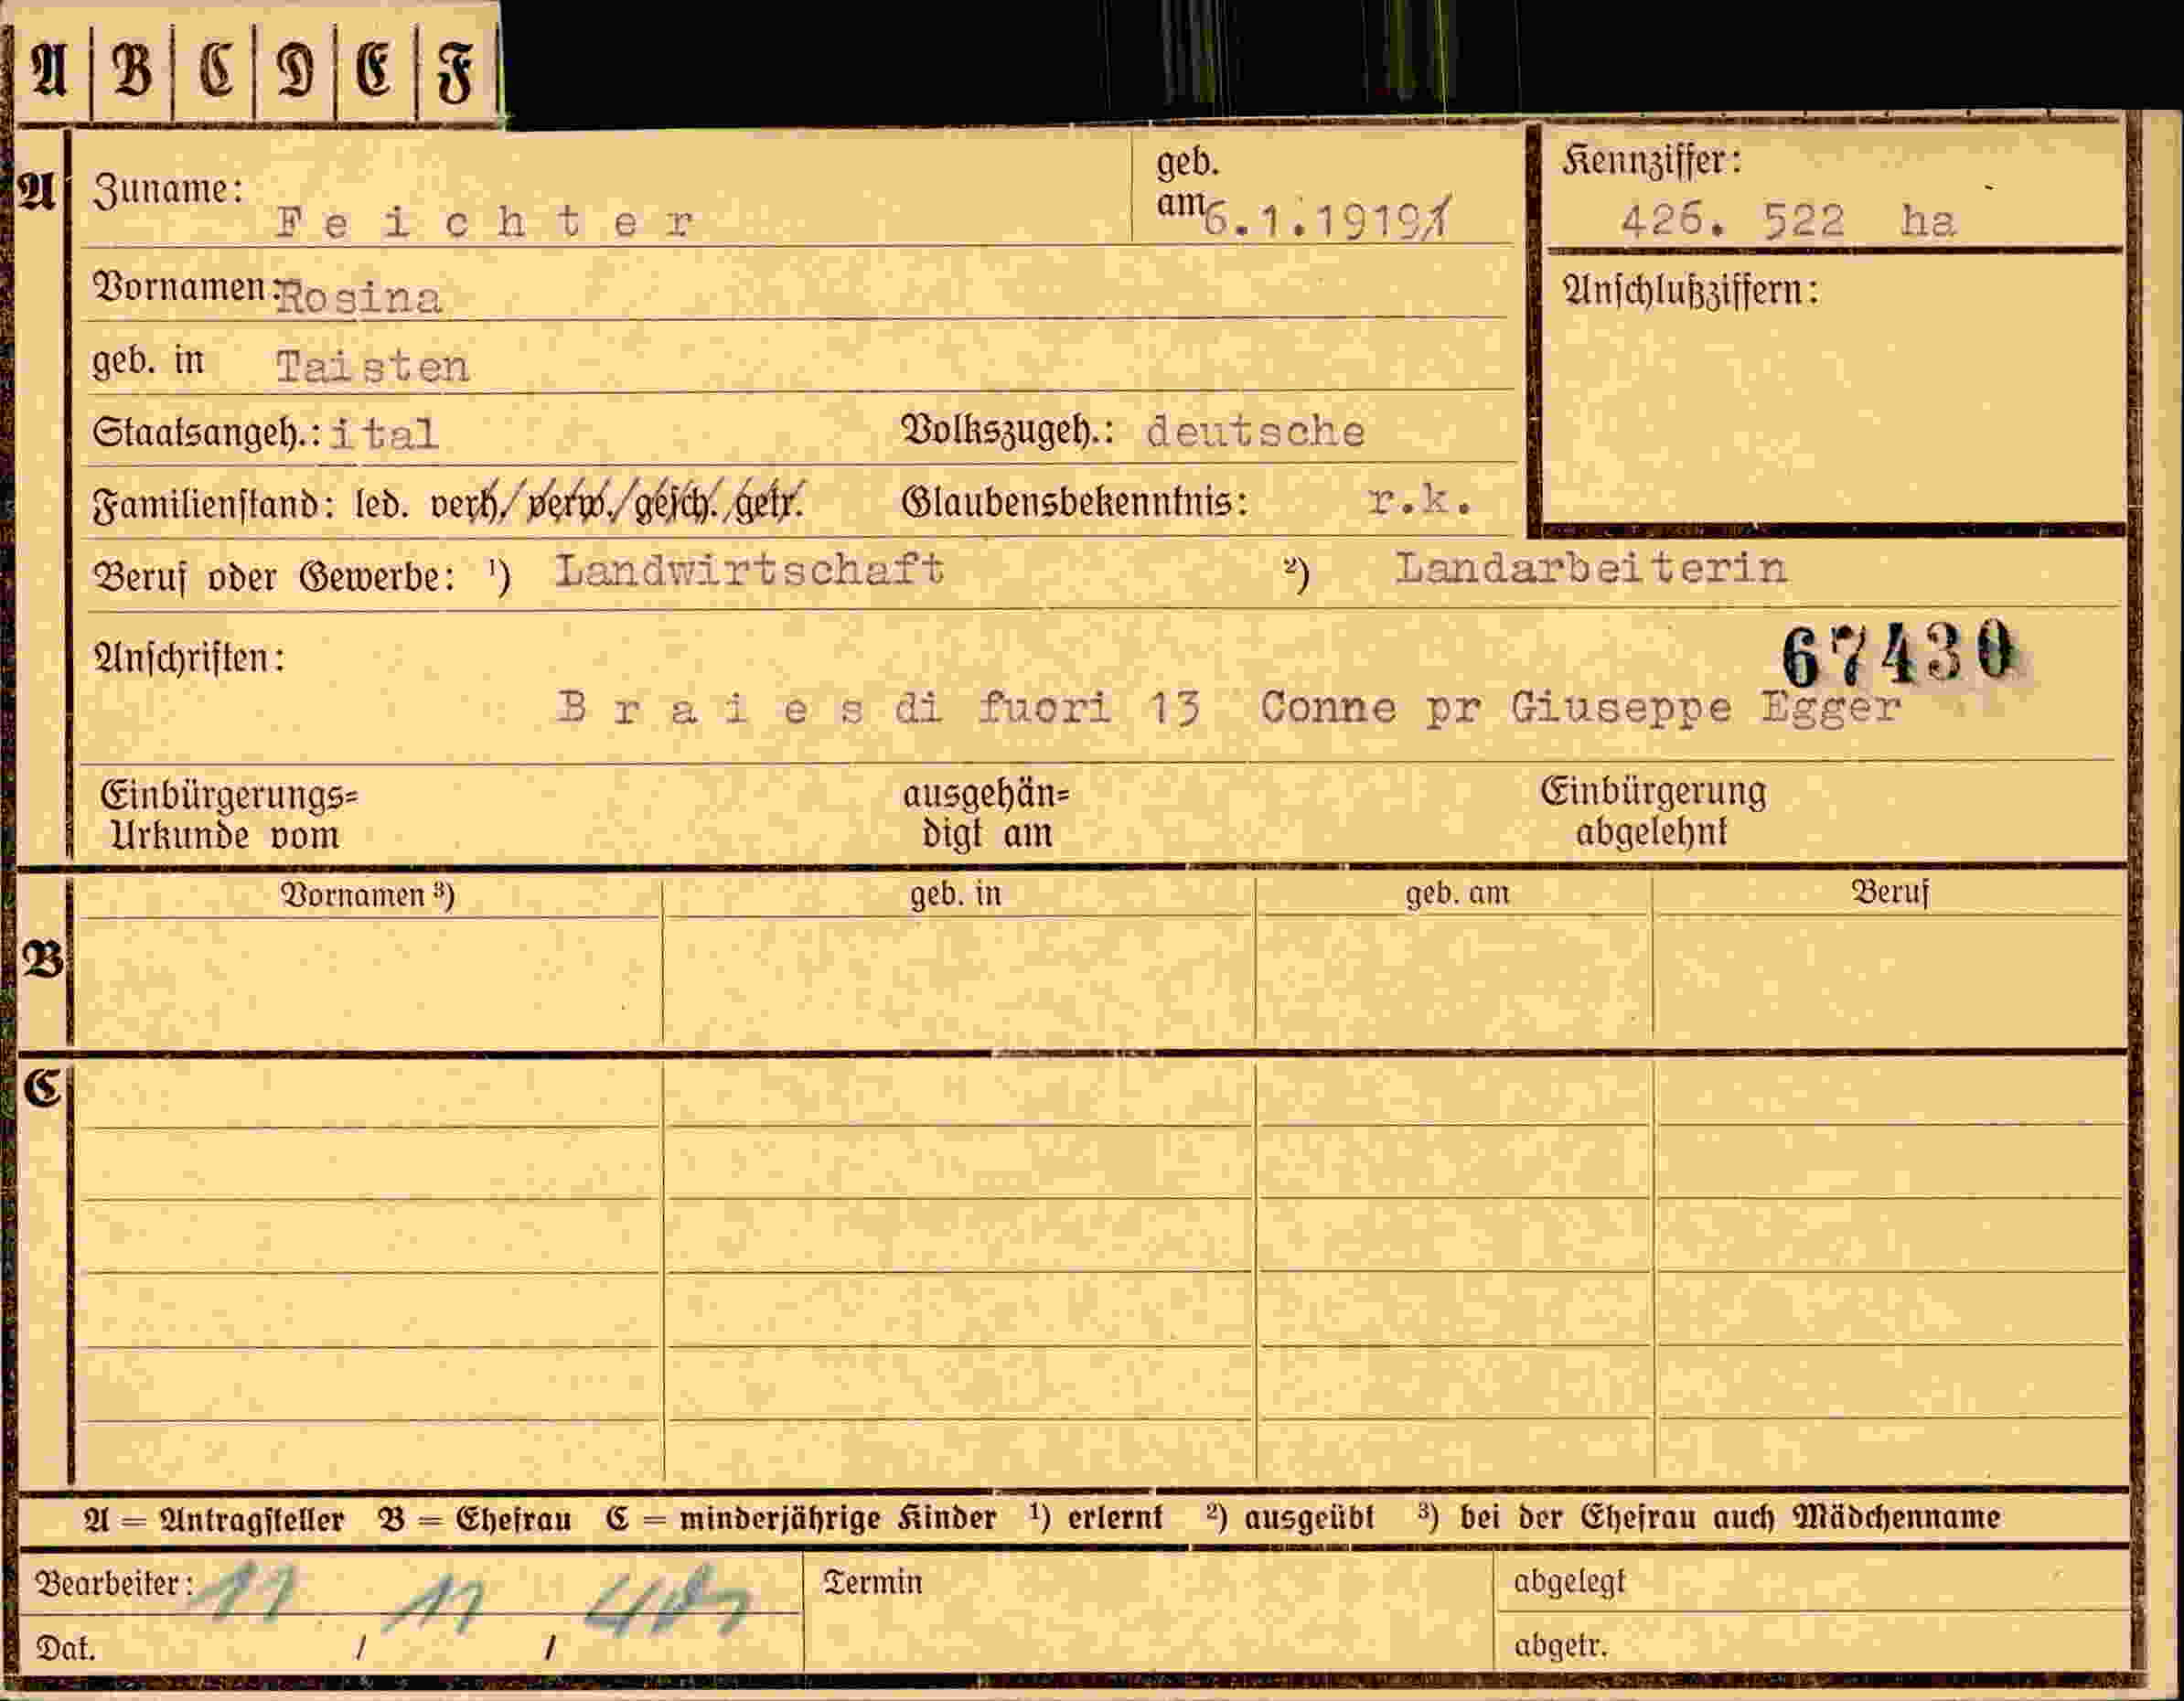 A B C D E F
A Zuname: Feichter geb. am 6.1.1919 Kennziffer: 426. 522 ha
Vornamen: Rosina Anschlußziffern:
geb. in Taisten
Staatsangeh.: ital Volkszugeh.: deutsche
Familienstand: led. verh./verw./gesch./getr. Glaubensbekenntnis: r.k.
Beruf oder Gewerbe: ¹) Landwirtschaft ²) Landarbeiterin
Anschriften: 67430
Braies di fuori 13 Conne pr Giuseppe Egger
Einbürgerungs= ausgehän= Einbürgerung
Urkunde vom digt am abgelehnt
B Vornamen ³) geb. in geb. am Beruf
C
A = Antragsteller B = Ehefrau C = minderjährige Kinder ¹) erlernt ²) ausgeübt ³) bei der Ehefrau auch Mädchenname
Bearbeiter: 11 11 Termin abgelegt
Dat. / / abgetr.